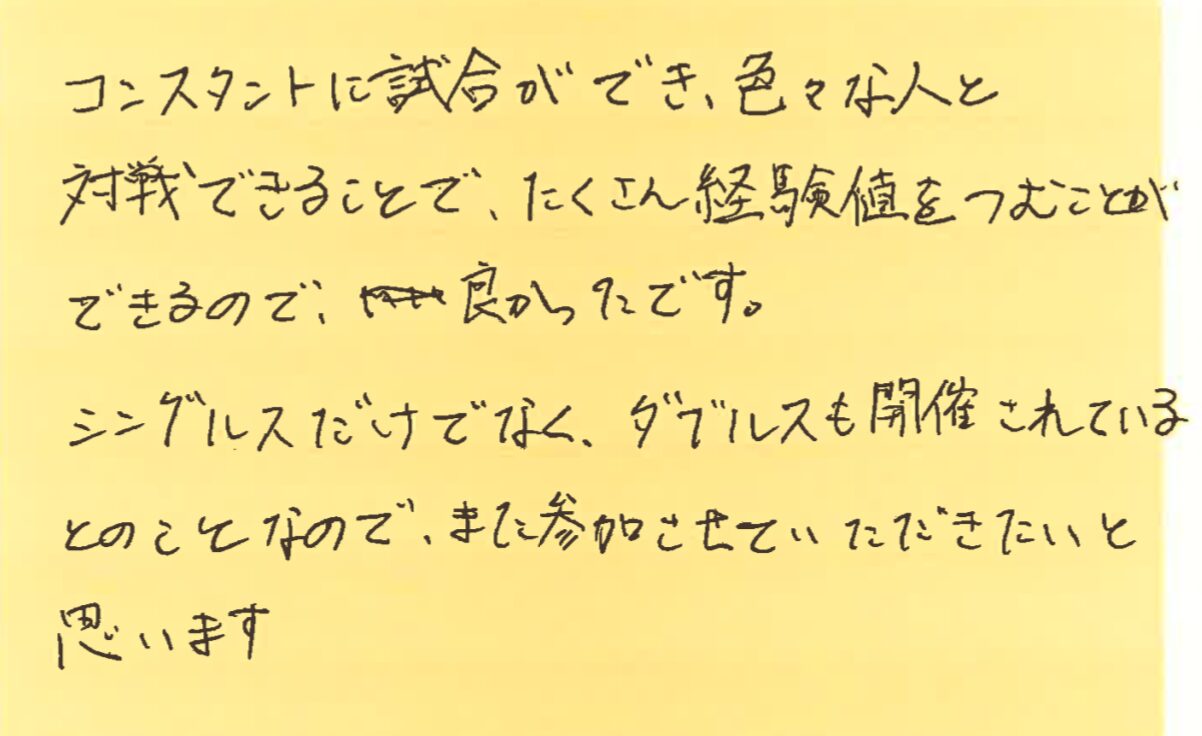 コンスタントに試合ができ、色々な人と
対戦できることで、たくさん経験値をつむことが
できるので、良かったです。
シングルスだけでなく、ダブルスも開催されている
とのことなので、また参加させていただきたいと
思います